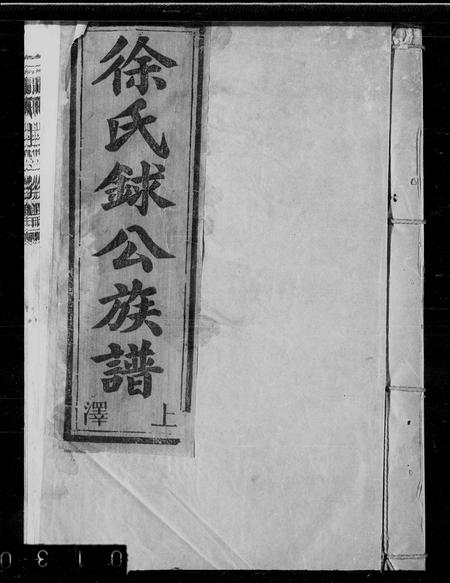 徐氏銶公族譜
上澤
0130